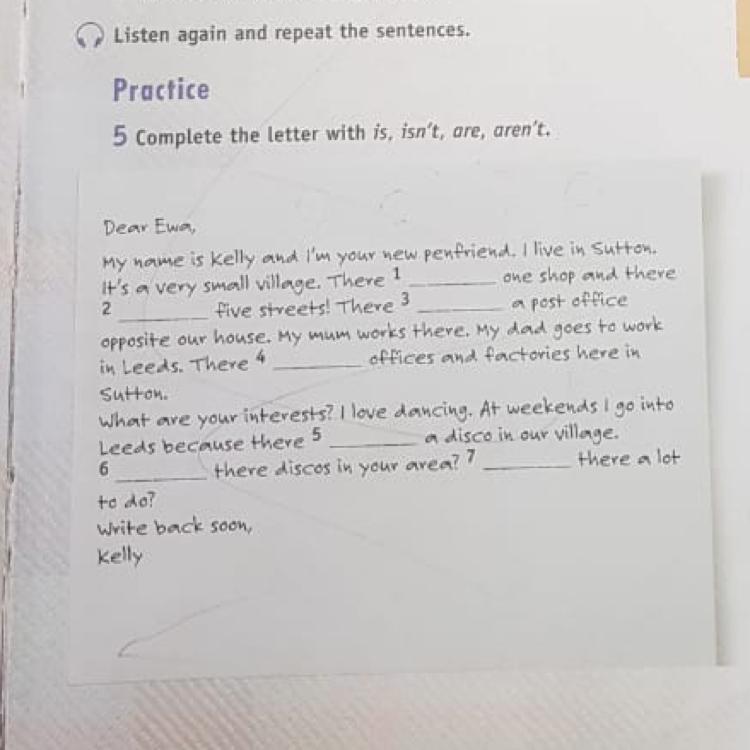 Listen again and repeat the sentences.
Practice
5 Complete the letter with is, isn't, are, aren't.
Dear Ewa,
My name is Kelly and I'm your new penfriend. I live in Sutton.
It's a very small village. There 1 ________ one shop and there
2 ________ five streets! There 3 ________ a post office
opposite our house. My mum works there. My dad goes to work
in Leeds. There 4 ________ offices and factories here in
Sutton.
What are your interests? I love dancing. At weekends I go into
Leeds because there 5 ________ a disco in our village.
6 ________ there discos in your area? 7 ________ there a lot
to do?
Write back soon,
Kelly